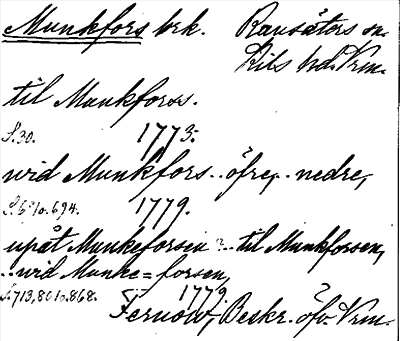 Munkfors brk. Ransäters sn.
Kils hd. Vrm.
til Munkforss.
S. 30. 1773.
wid Munkfors .. öfre, .. nedre,
694. 1779.
upåt Munkeforsen .. til Munkforsen,
.. wid Munke=forsen,
S. 713, 801 o. 868. 1779.
Fernow, Beskr. öfv. Vrm.